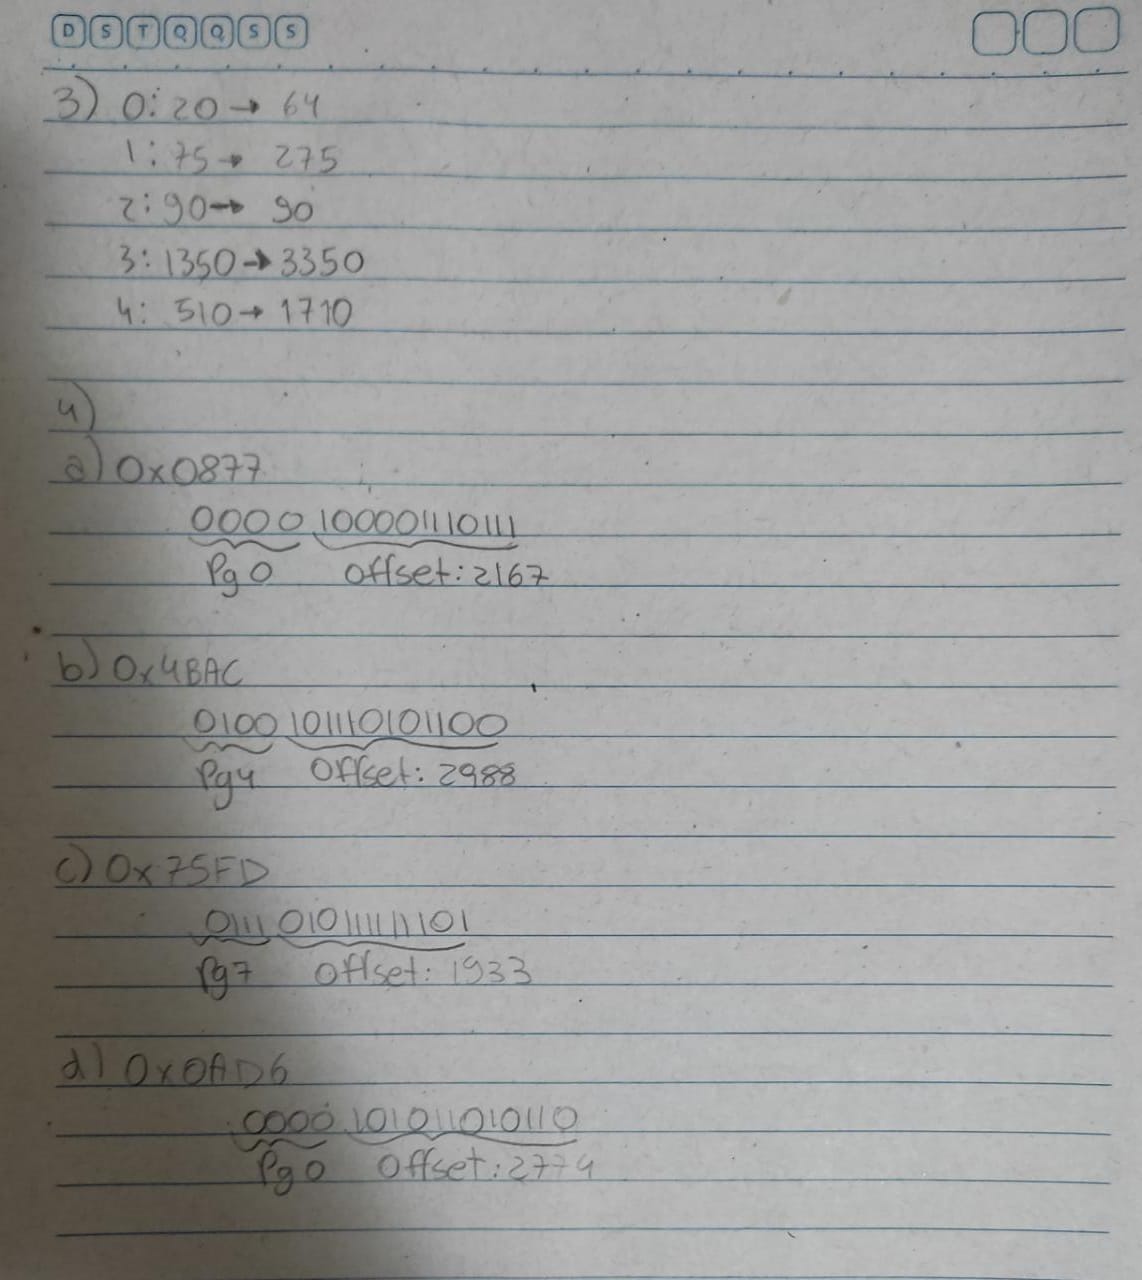 D S T Q Q S S
3) 0: 20 → 64
1: 75 → 275
2: 90 → 90
3: 1350 → 3350
4: 510 → 1710
4)
a) 0x0877
0000 100001110111
Pg 0 offset: 2167
b) 0x4BAC
0100 101110101100
Pg 4 Offset: 2988
c) 0x75FD
0111 010111111101
Pg 7 offset: 1933
d) 0x0AD6
0000 101011010110
Pg 0 Offset: 2774